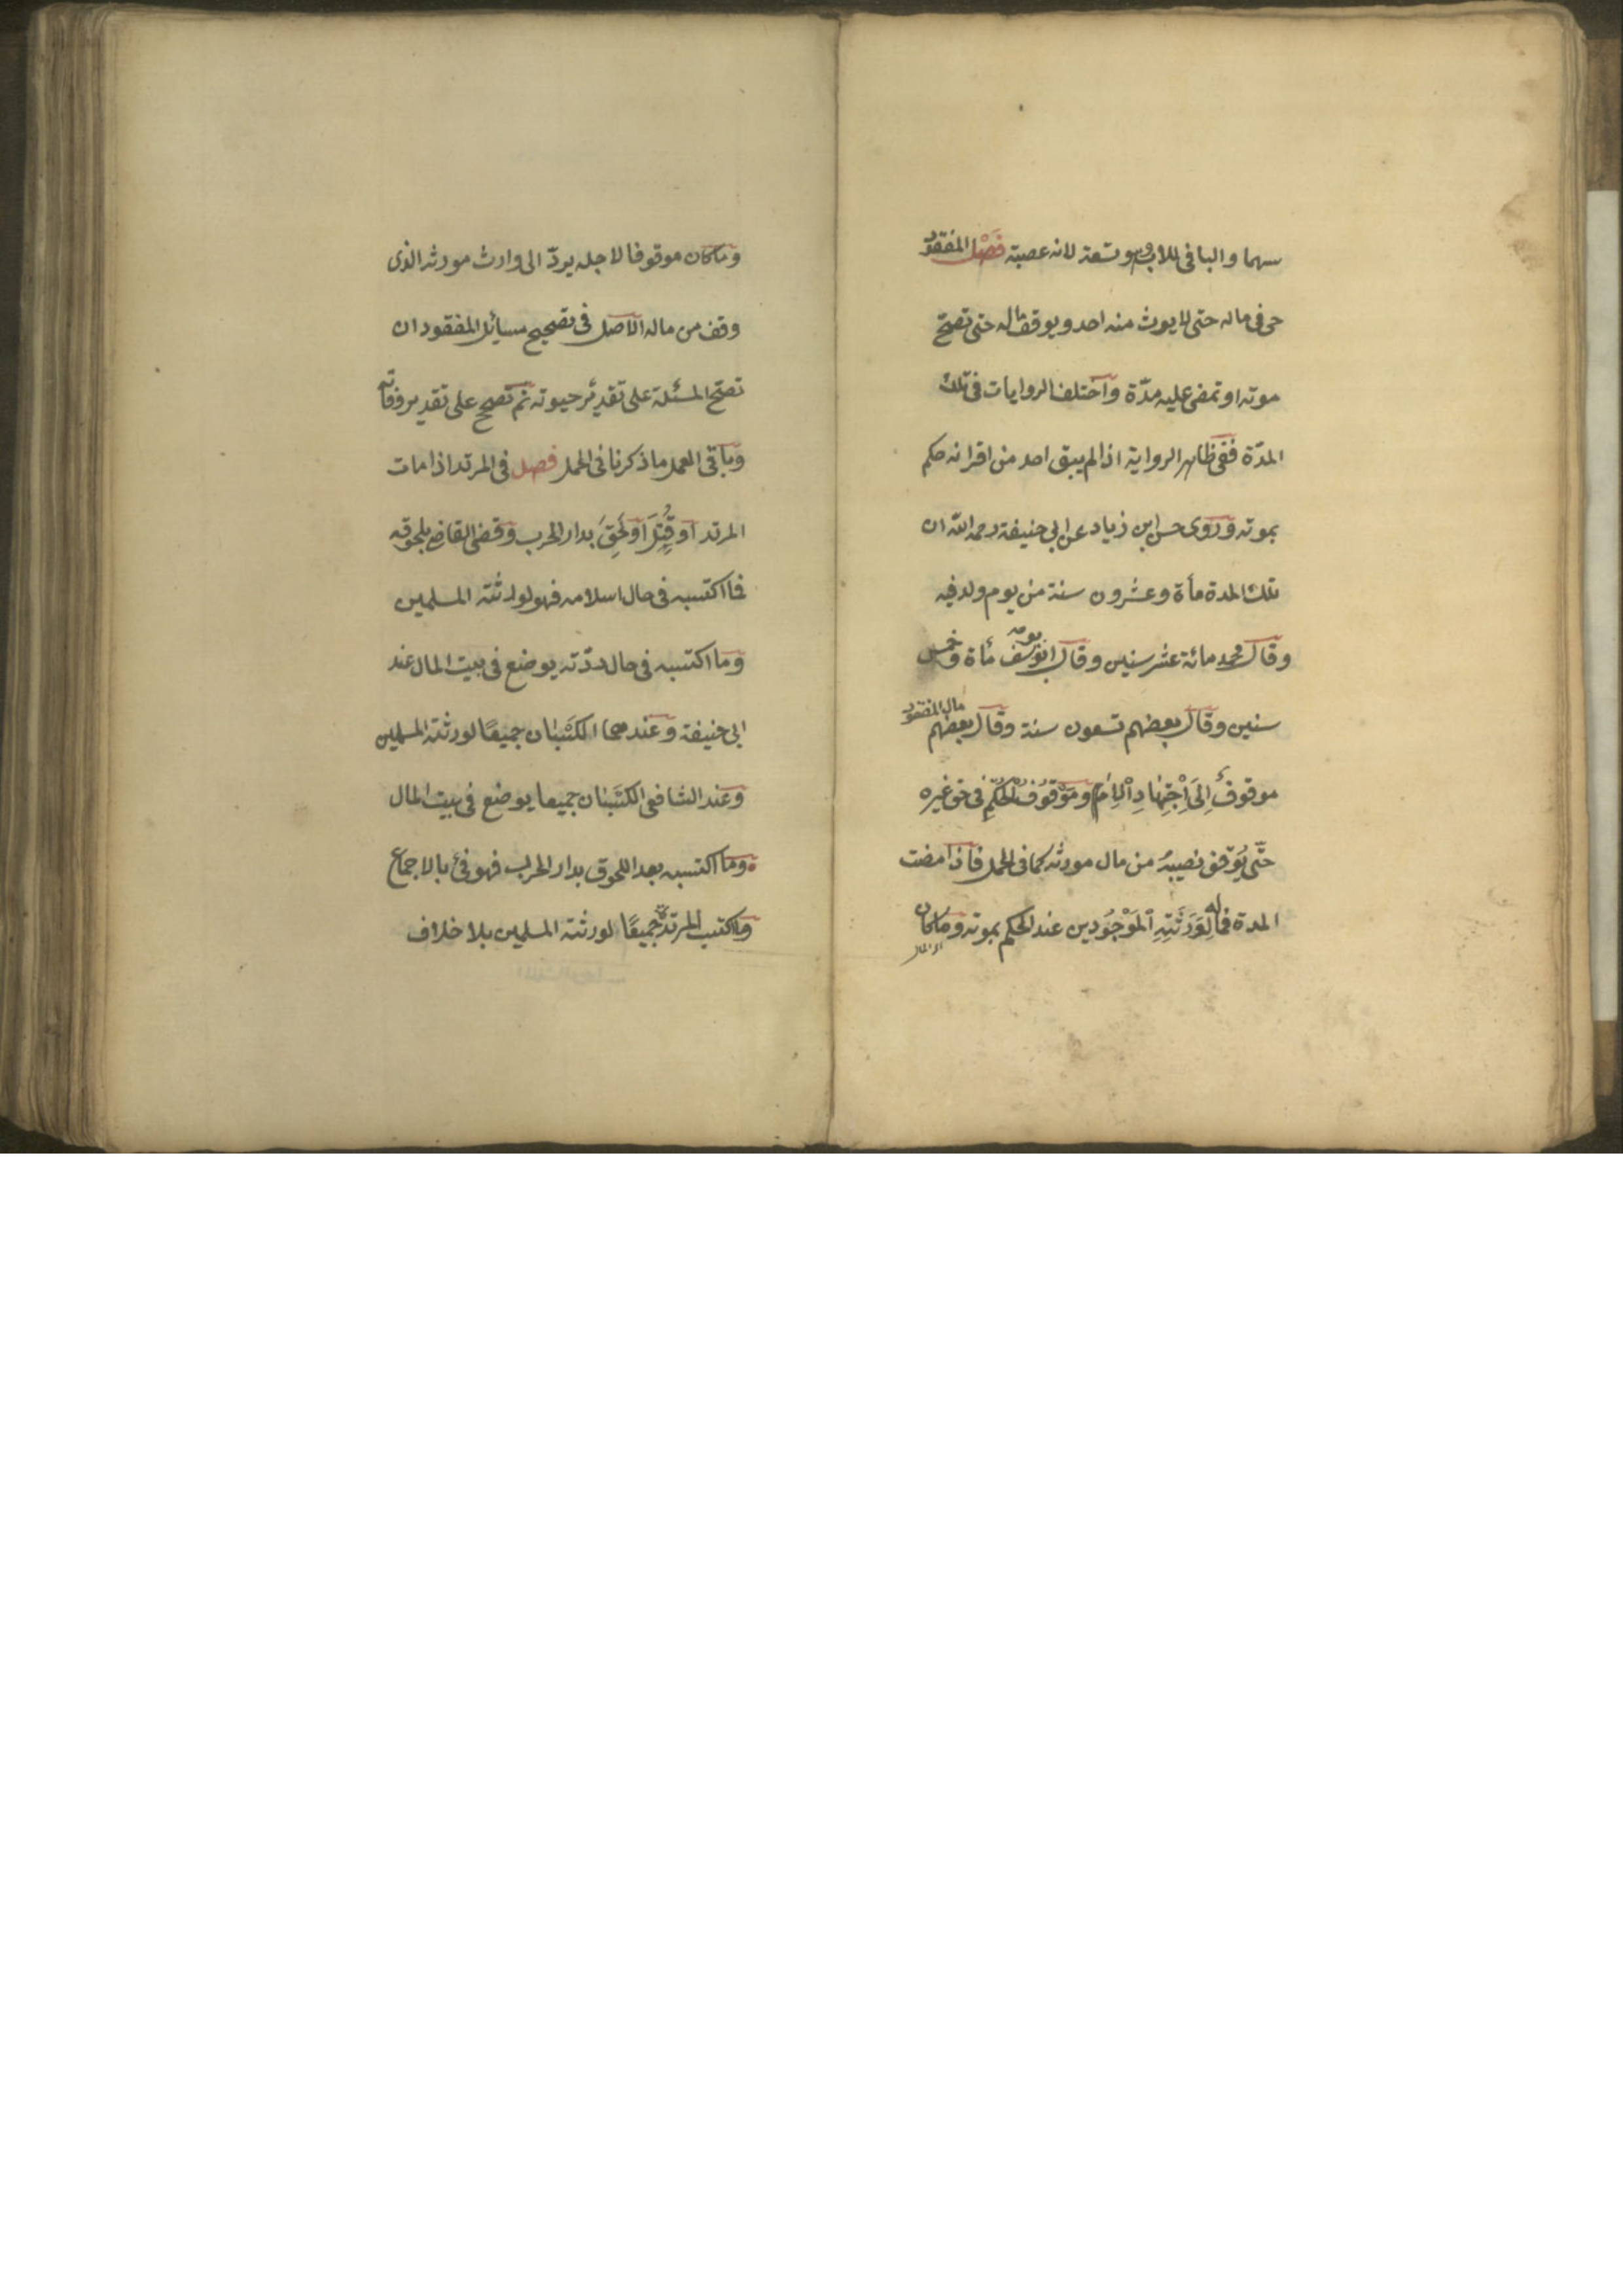 سهما والباقى للاب وهو تسعة لانه عصبة فَصْل المفقود
حى فى ماله حتى لا يرث منه احد ويوقف ماله حتى تصحّ
موته او تمضى عليه مدّة واختلف الروايات فى تلك
المدّة ففى ظاهر الرواية اذا لم يبق احد من اقرانه حكم
بموته وروى حسن ابن زياد عن ابى حنيفة رحمه الله ان
تلك المدة مأة وعشرون سنة من يوم ولد فيه
وقال محمد مائة عشر سنين وقال ابو يوسف مأة وخمس
سنين وقال بعضهم تسعون سنة وقال بعضهم مال المفقود
موقوفٌ اِلَى اِجْتِهَادِ اْلاِمَامِ وَمَوْقُوفُ الْحُكْمِ فى حق غيره
حتّى يُوقف نصيبهُ من مال مورثه كما فى الحمل فاذا مضت
المدة فماله لِوَرَثَتِهِ اْلمَوْجُودِين عند الحكم بموته وما كان
وما كان موقوفا لاجله يردّ الى وارث مورثه الذى
وقف من ماله الاصل فى تصحيح مسائل المفقود ان
تصحّ المسئلة على تقدير حيوته ثم تصحح على تقدير وفاته
وباقى العمل ما ذكرنا فى الحمل فصل فى المرتد اذا مات
المرتد اَو قُتِلَ اَو لَحِقَ بدار الحرب وقضى القاضى بلحوقه
فما اكتسبه فى حال اسلامه فهو لورثته المسلمين
وما اكتسبه فى حال ردّته يوضع فى بيت المال عند
ابى حنيفة وعندهما الكَسْبَان جميعًا لورثته المسلمين
وعند الشافعى الكَسْبَان جميعا يوضع فى بيت المال
وما اكتسبه بعد اللحوق بدار الحرب فهو فئ بالاجماع
وما اكتسب المرتدّة جميعًا لورثته المسلمين بلا خلاف